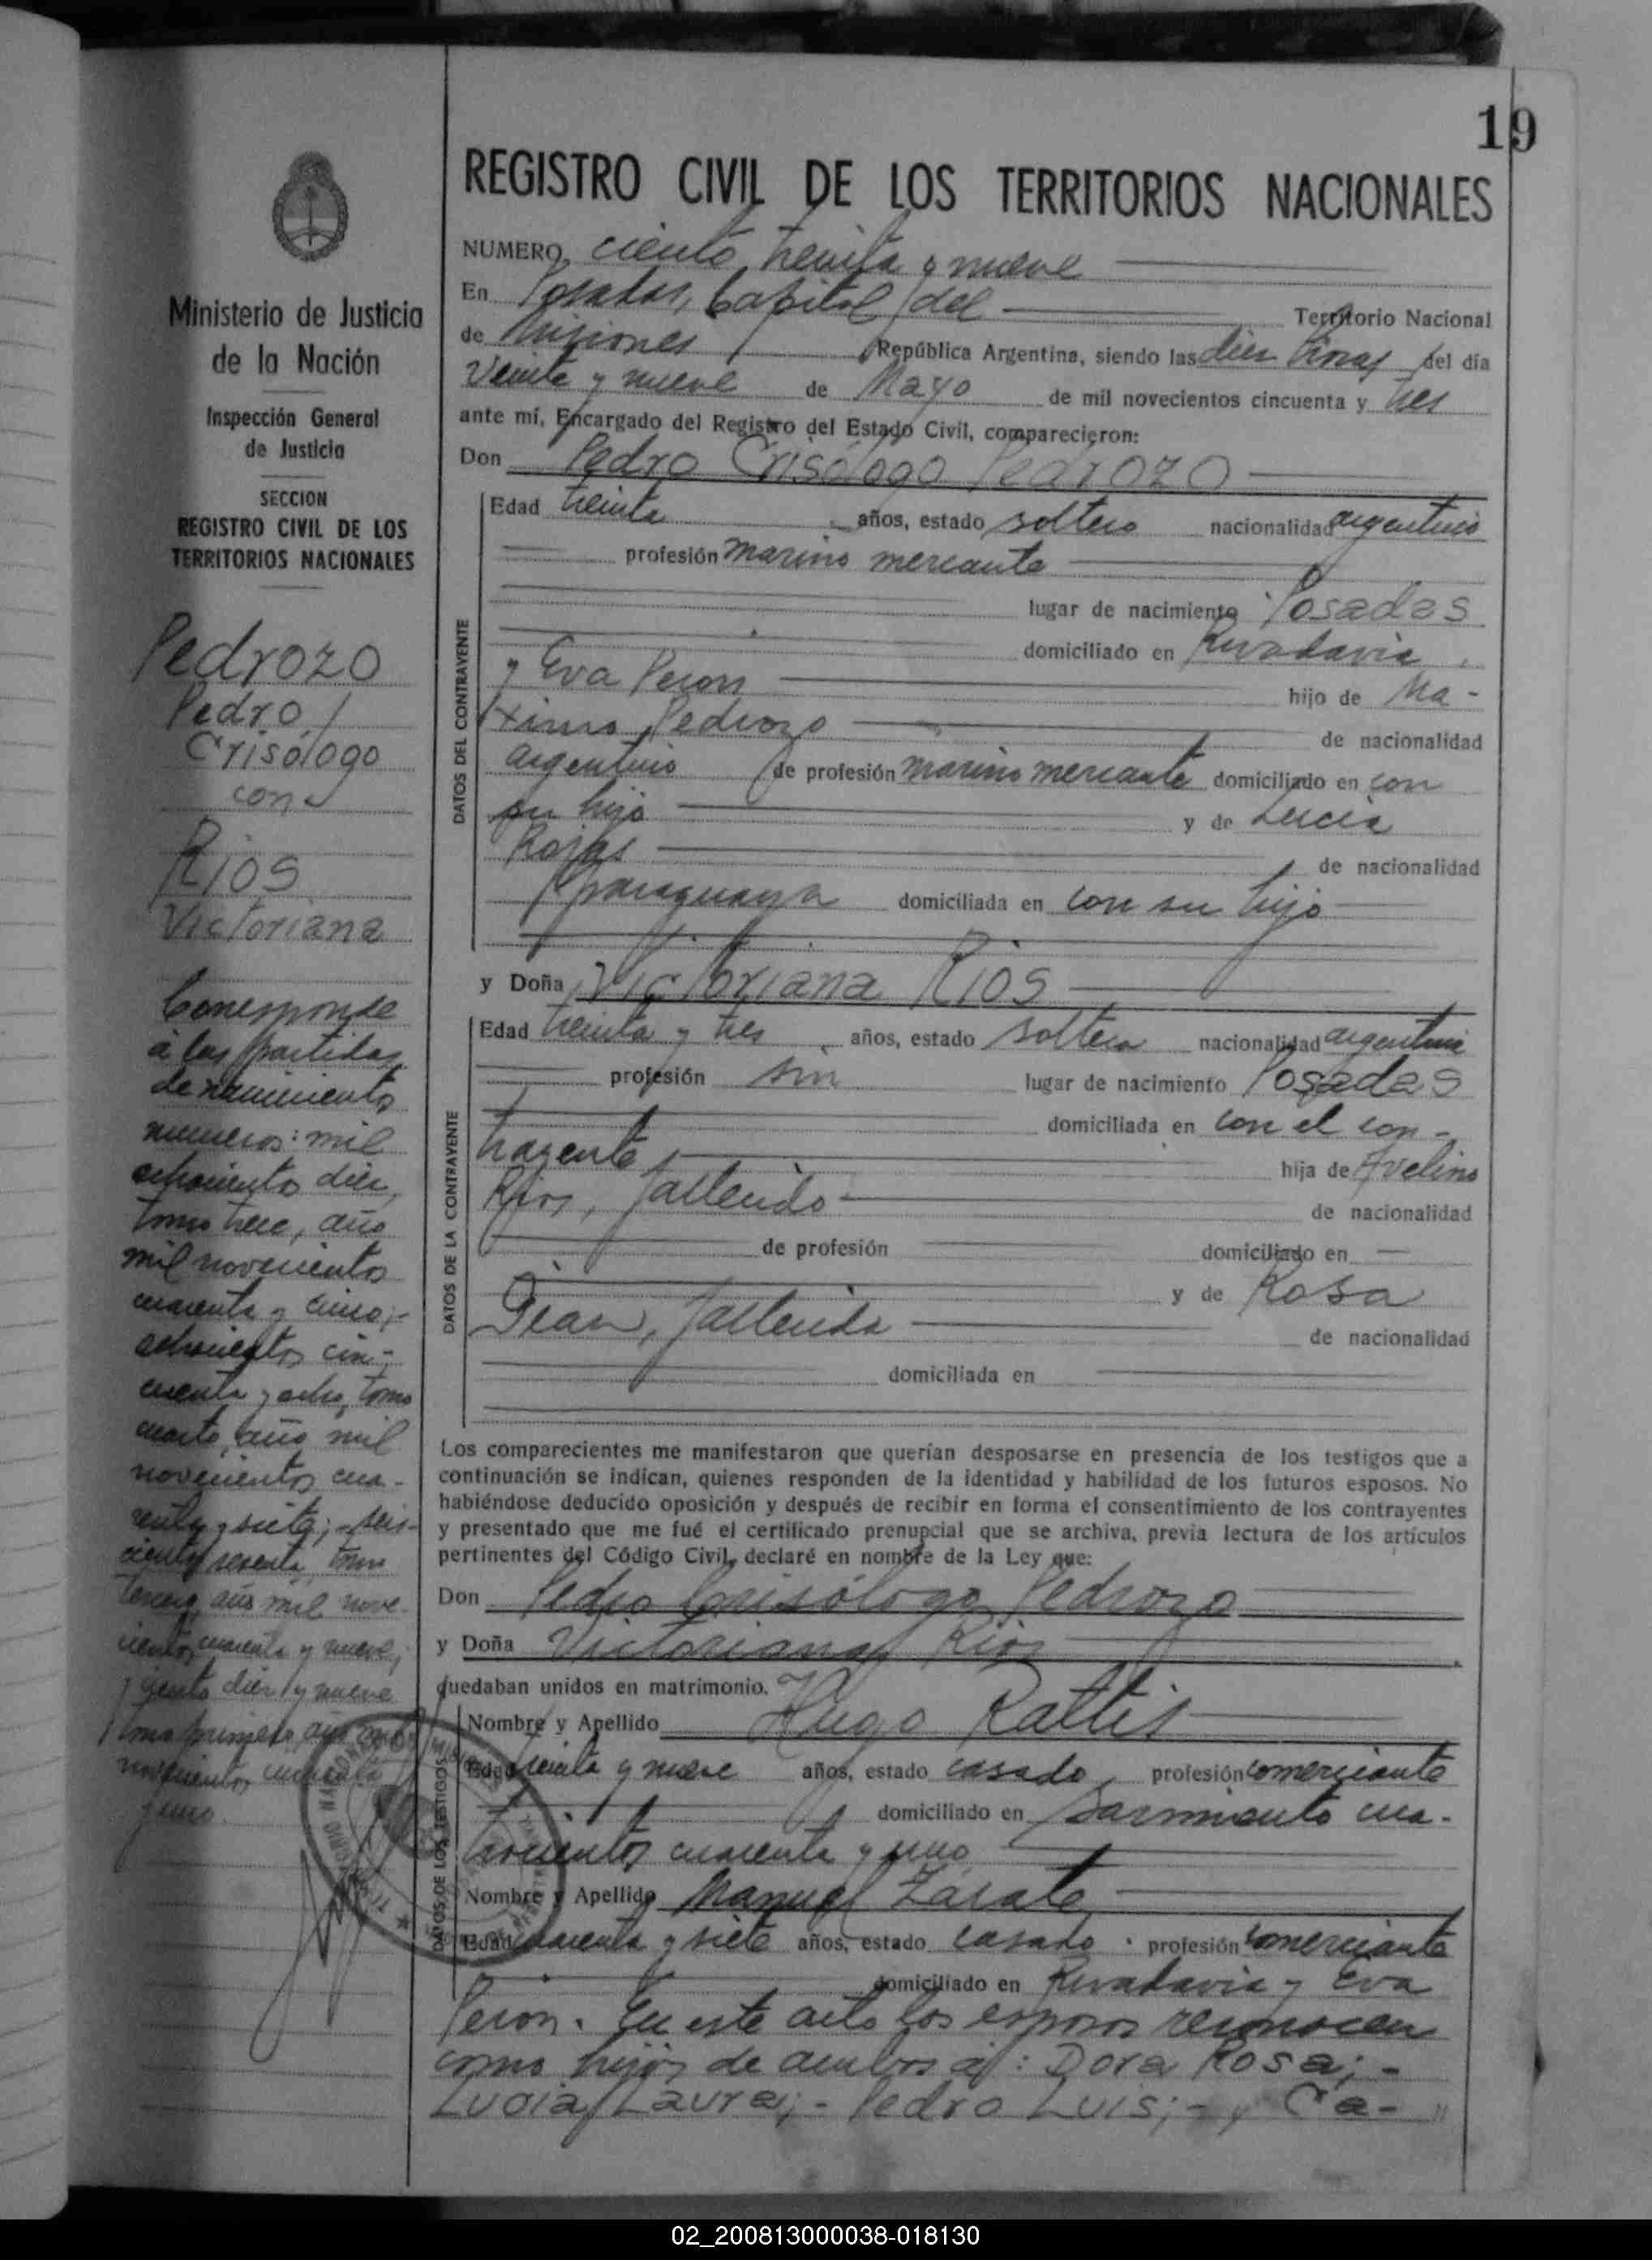 19
REGISTRO CIVIL DE LOS TERRITORIOS NACIONALES
Ministerio de Justicia
de la Nación
Inspección General
de Justicia
SECCION
REGISTRO CIVIL DE LOS
TERRITORIOS NACIONALES
Pedrozo
Pedro
Crisólogo
con
Rios
Victoriana
Corresponde
a las partidas
de nacimiento
numeros: mil
ochociento diez,
tomo trece, año
mil novecientos
cuarenta y cinco;-
ochocientos cin-
cuenta y ocho, tomo
cuarto, año mil
novecientos cua-
renta y siete; - seis-
cientos sesenta, tomo
tercero, año mil nove-
cientos cuarenta y nueve;
y ciento diez y nueve
tomo primero, año mil
novecientos cincuenta
y uno.
NUMERO ciento treinta y nueve
En Posadas, Capital del Territorio Nacional
de Misiones República Argentina, siendo las diez horas del día
Veinte y nueve de Mayo de mil novecientos cincuenta y tres
ante mí, Encargado del Registro del Estado Civil, comparecieron:
Don Pedro Crisólogo Pedrozo
DATOS DEL CONTRAYENTE
Edad treinta años, estado soltero nacionalidad argentino
profesión marino mercante
lugar de nacimiento Posadas
domiciliado en Rivadavia
y Eva Peron hijo de Ma-
ximo Pedrozo de nacionalidad
argentino de profesión marino mercante domiciliado en con
su hijo y de Lucia
Rojas de nacionalidad
paraguaya domiciliada en con su hijo
y Doña Victoriana Rios
DATOS DE LA CONTRAYENTE
Edad treinta y tres años, estado soltera nacionalidad argentina
profesión sin lugar de nacimiento Posadas
domiciliada en con el con-
trayente hija de Avelino
Rios, fallecido de nacionalidad
de profesión domiciliado en
y de Rosa
fallecida de nacionalidad
domiciliada en
Los comparecientes me manifestaron que querían desposarse en presencia de los testigos que a
continuación se indican, quienes responden de la identidad y habilidad de los futuros esposos. No
habiéndose deducido oposición y después de recibir en forma el consentimiento de los contrayentes
y presentado que me fué el certificado prenupcial que se archiva, previa lectura de los artículos
pertinentes del Código Civil, declaré en nombre de la Ley que:
Don Pedro Crisólogo Pedrozo
y Doña Victoriana Rios
quedaban unidos en matrimonio.
DATOS DE LOS TESTIGOS
Nombre y Apellido Hugo Rattis
Edad treinta y nueve años, estado casado, profesión comerciante
domiciliado en Sarmiento cua-
trocientos cuarenta y uno
Nombre y Apellido Manuel Zárate
Edad cuarenta y siete años, estado casado profesión comerciante
domiciliado en Rivadavia y Eva
Peron. En este acto los esposos reconocen
como hijos de ambos a: Dora Rosa; -
Lucia Laura; - Pedro Luis; - y Ca-
02_200813000038-018130